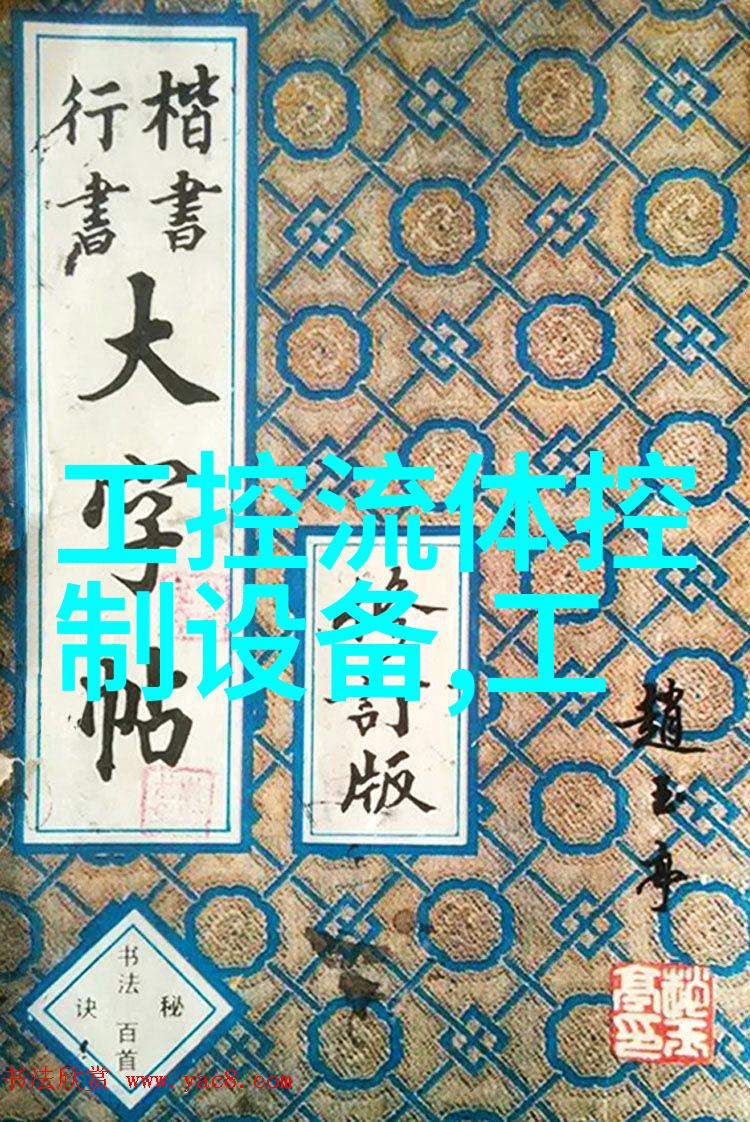 楷書
行書
大字帖
修訂版
趙玉亭
工控流体控
制设备,工
书法
百首
秘
诀
书法欣赏 www.yac8.com